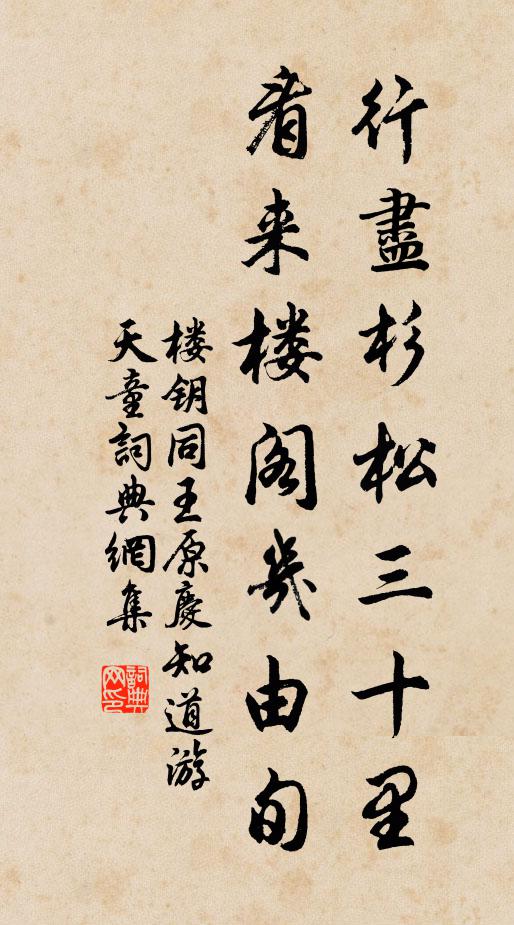 行盡杉松三十里
看来楼阁幾由旬
楼钥同王原慶知道游
天童詞典網集
詞典
网印